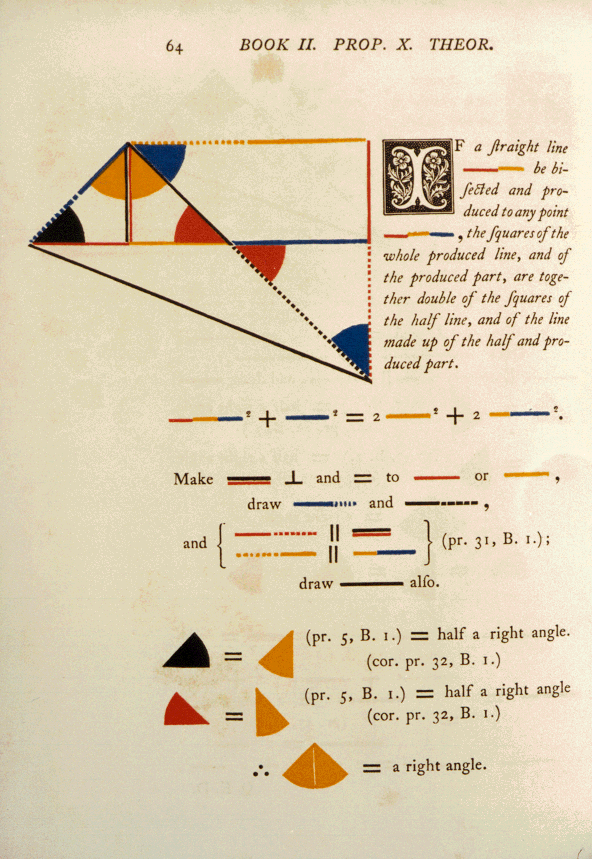 64 BOOK II. PROP. X. THEOR.
IF a ſtraight line
be bi-
ſected and pro-
duced to any point
, the ſquares of the
whole produced line, and of
the produced part, are toge-
ther double of the ſquares of
the half line, and of the line
made up of the half and pro-
duced part.
² + ² = 2 ² + 2 ².
Make ⊥ and = to or ,
draw and ,
and { || || } (pr. 31, B. 1.);
draw alſo.
= (pr. 5, B. 1.) = half a right angle.
(cor. pr. 32, B. 1.)
= (pr. 5, B. 1.) = half a right angle
(cor. pr. 32, B. 1.)
∴ = a right angle.